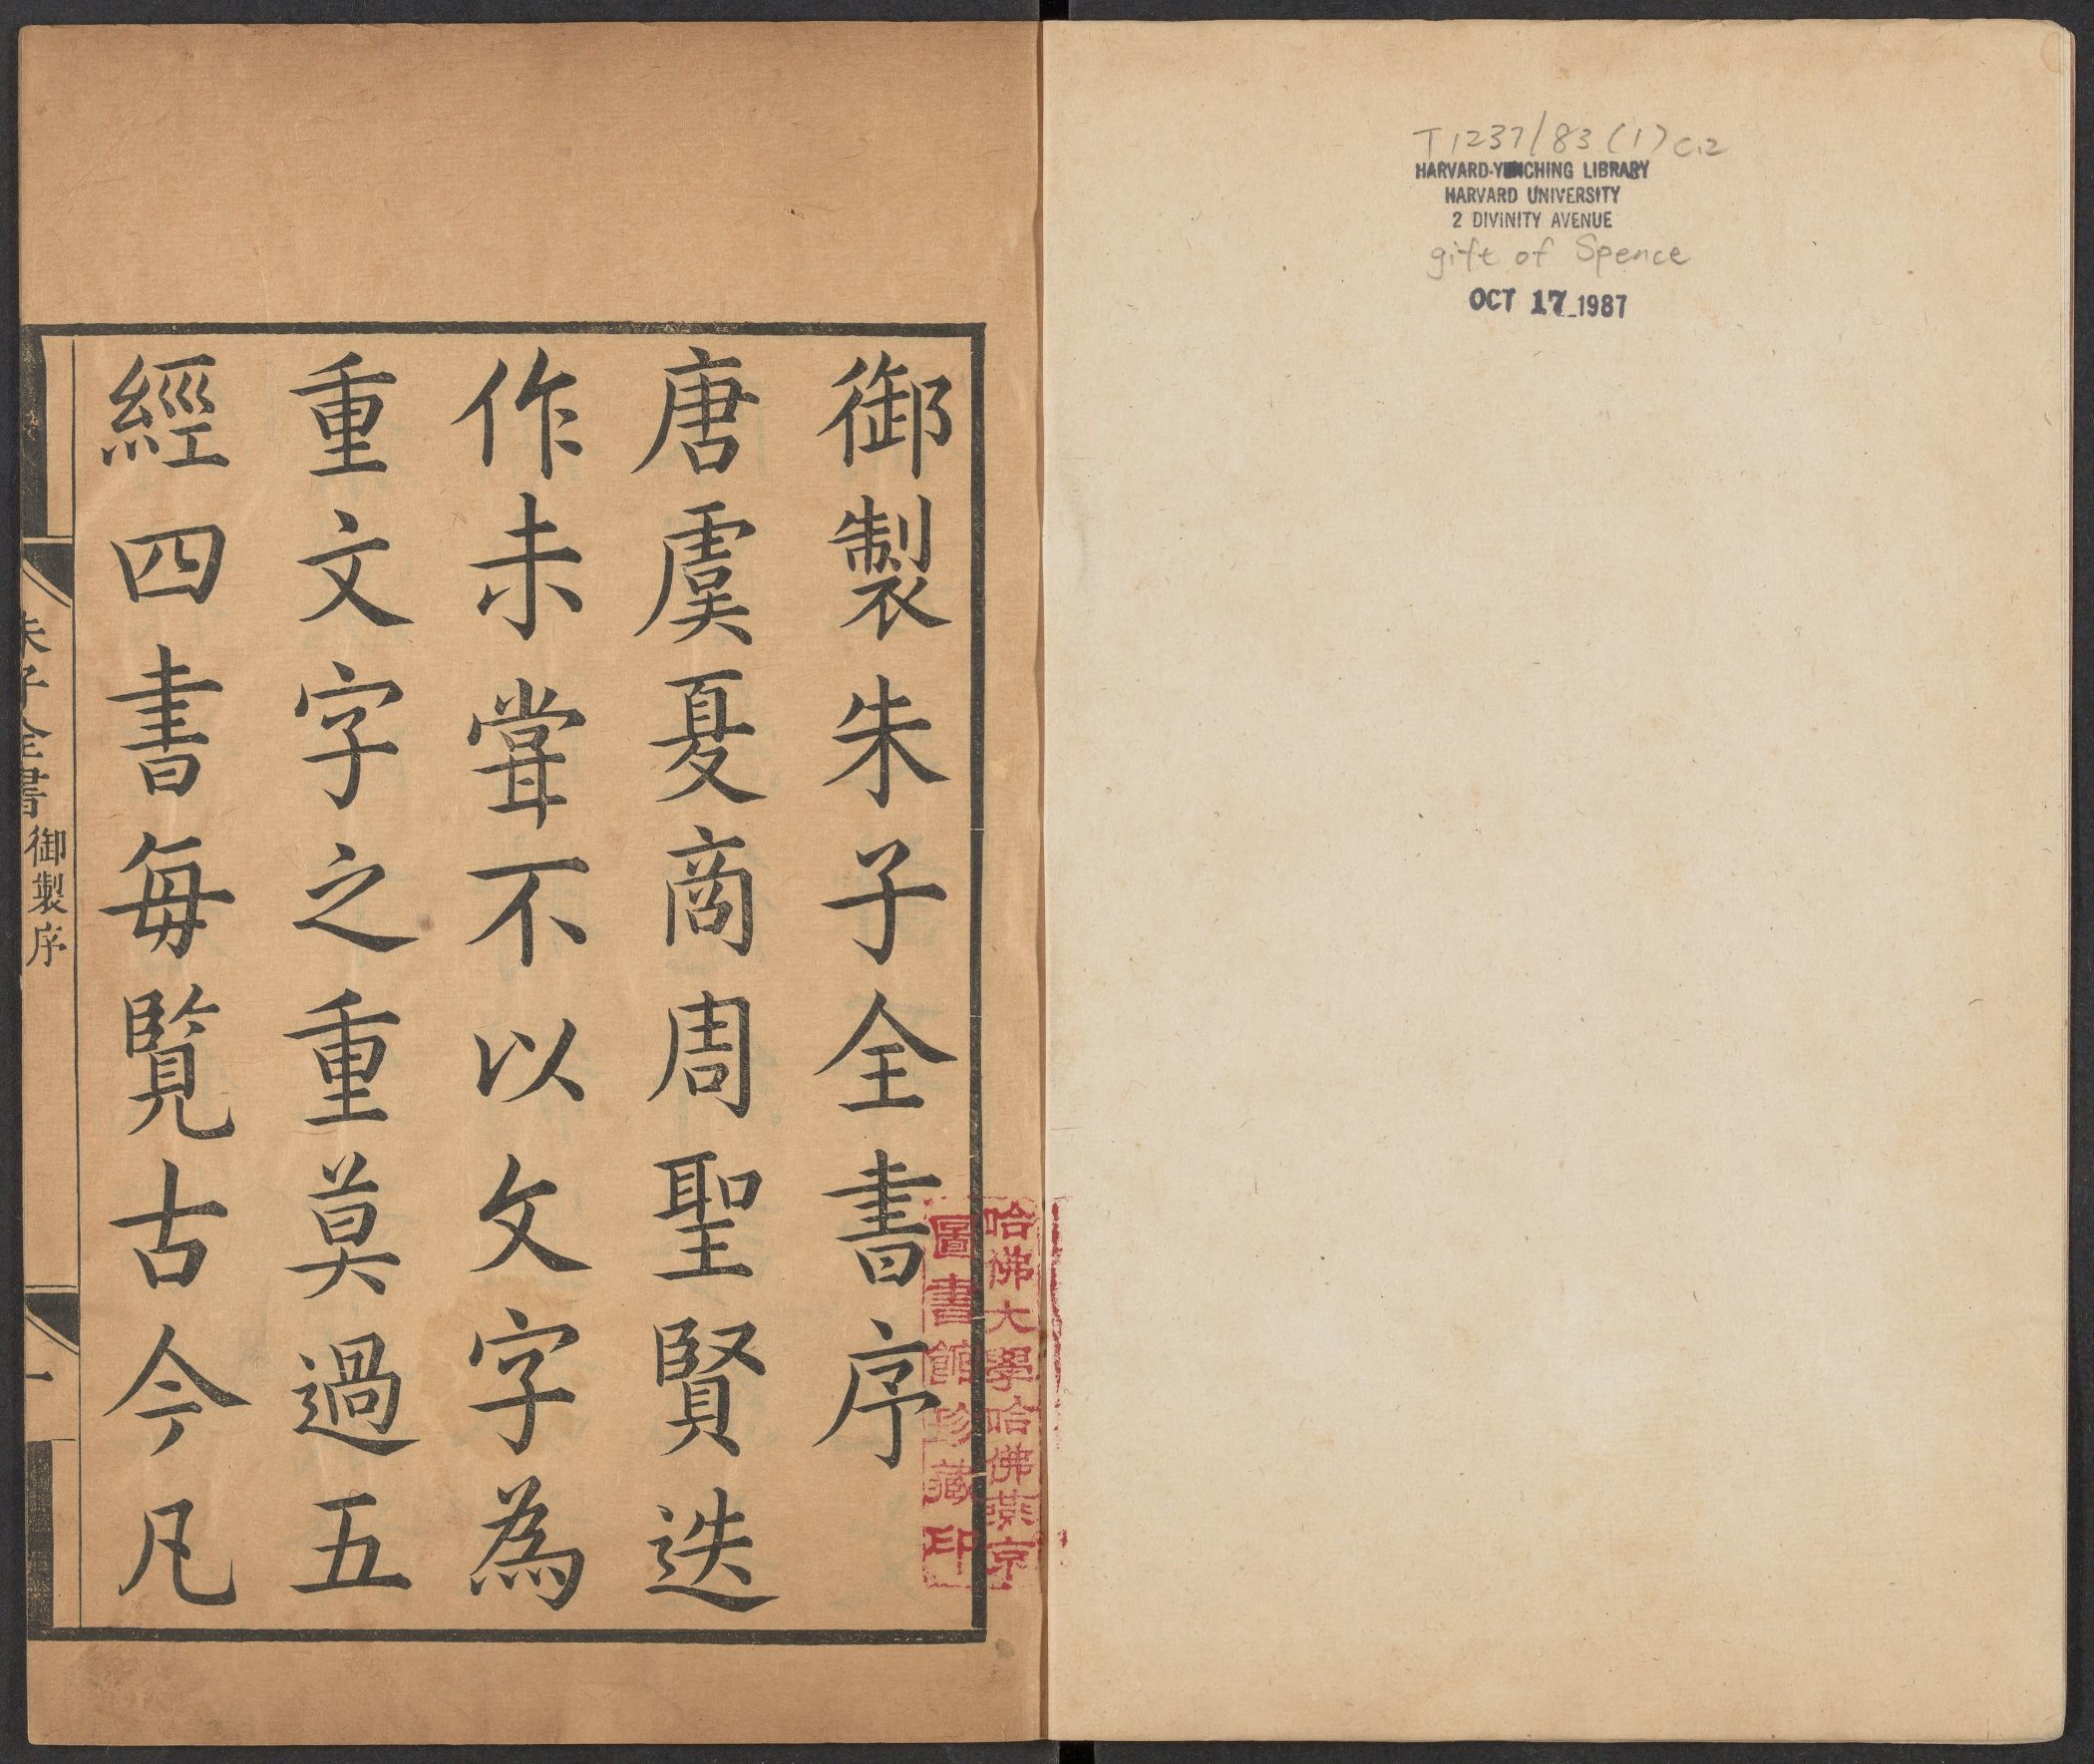 T1237/83(1) C.2
HARVARD-YENCHING LIBRARY
HARVARD UNIVERSITY
2 DIVINITY AVENUE
gift of Spence
OCT 17 1987
御製朱子全書序
唐虞夏商周聖賢迭
作未甞不以文字為
重文字之重莫過五
經四書每覧古今凡
朱子全書 御製序 一
哈佛大學哈佛燕京
圖書館珍藏印